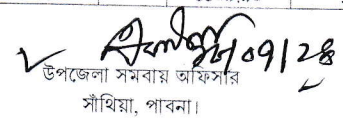 ০৭/২৪
উপজেলা সমবায় অফিসার
সাঁথিয়া, পাবনা।